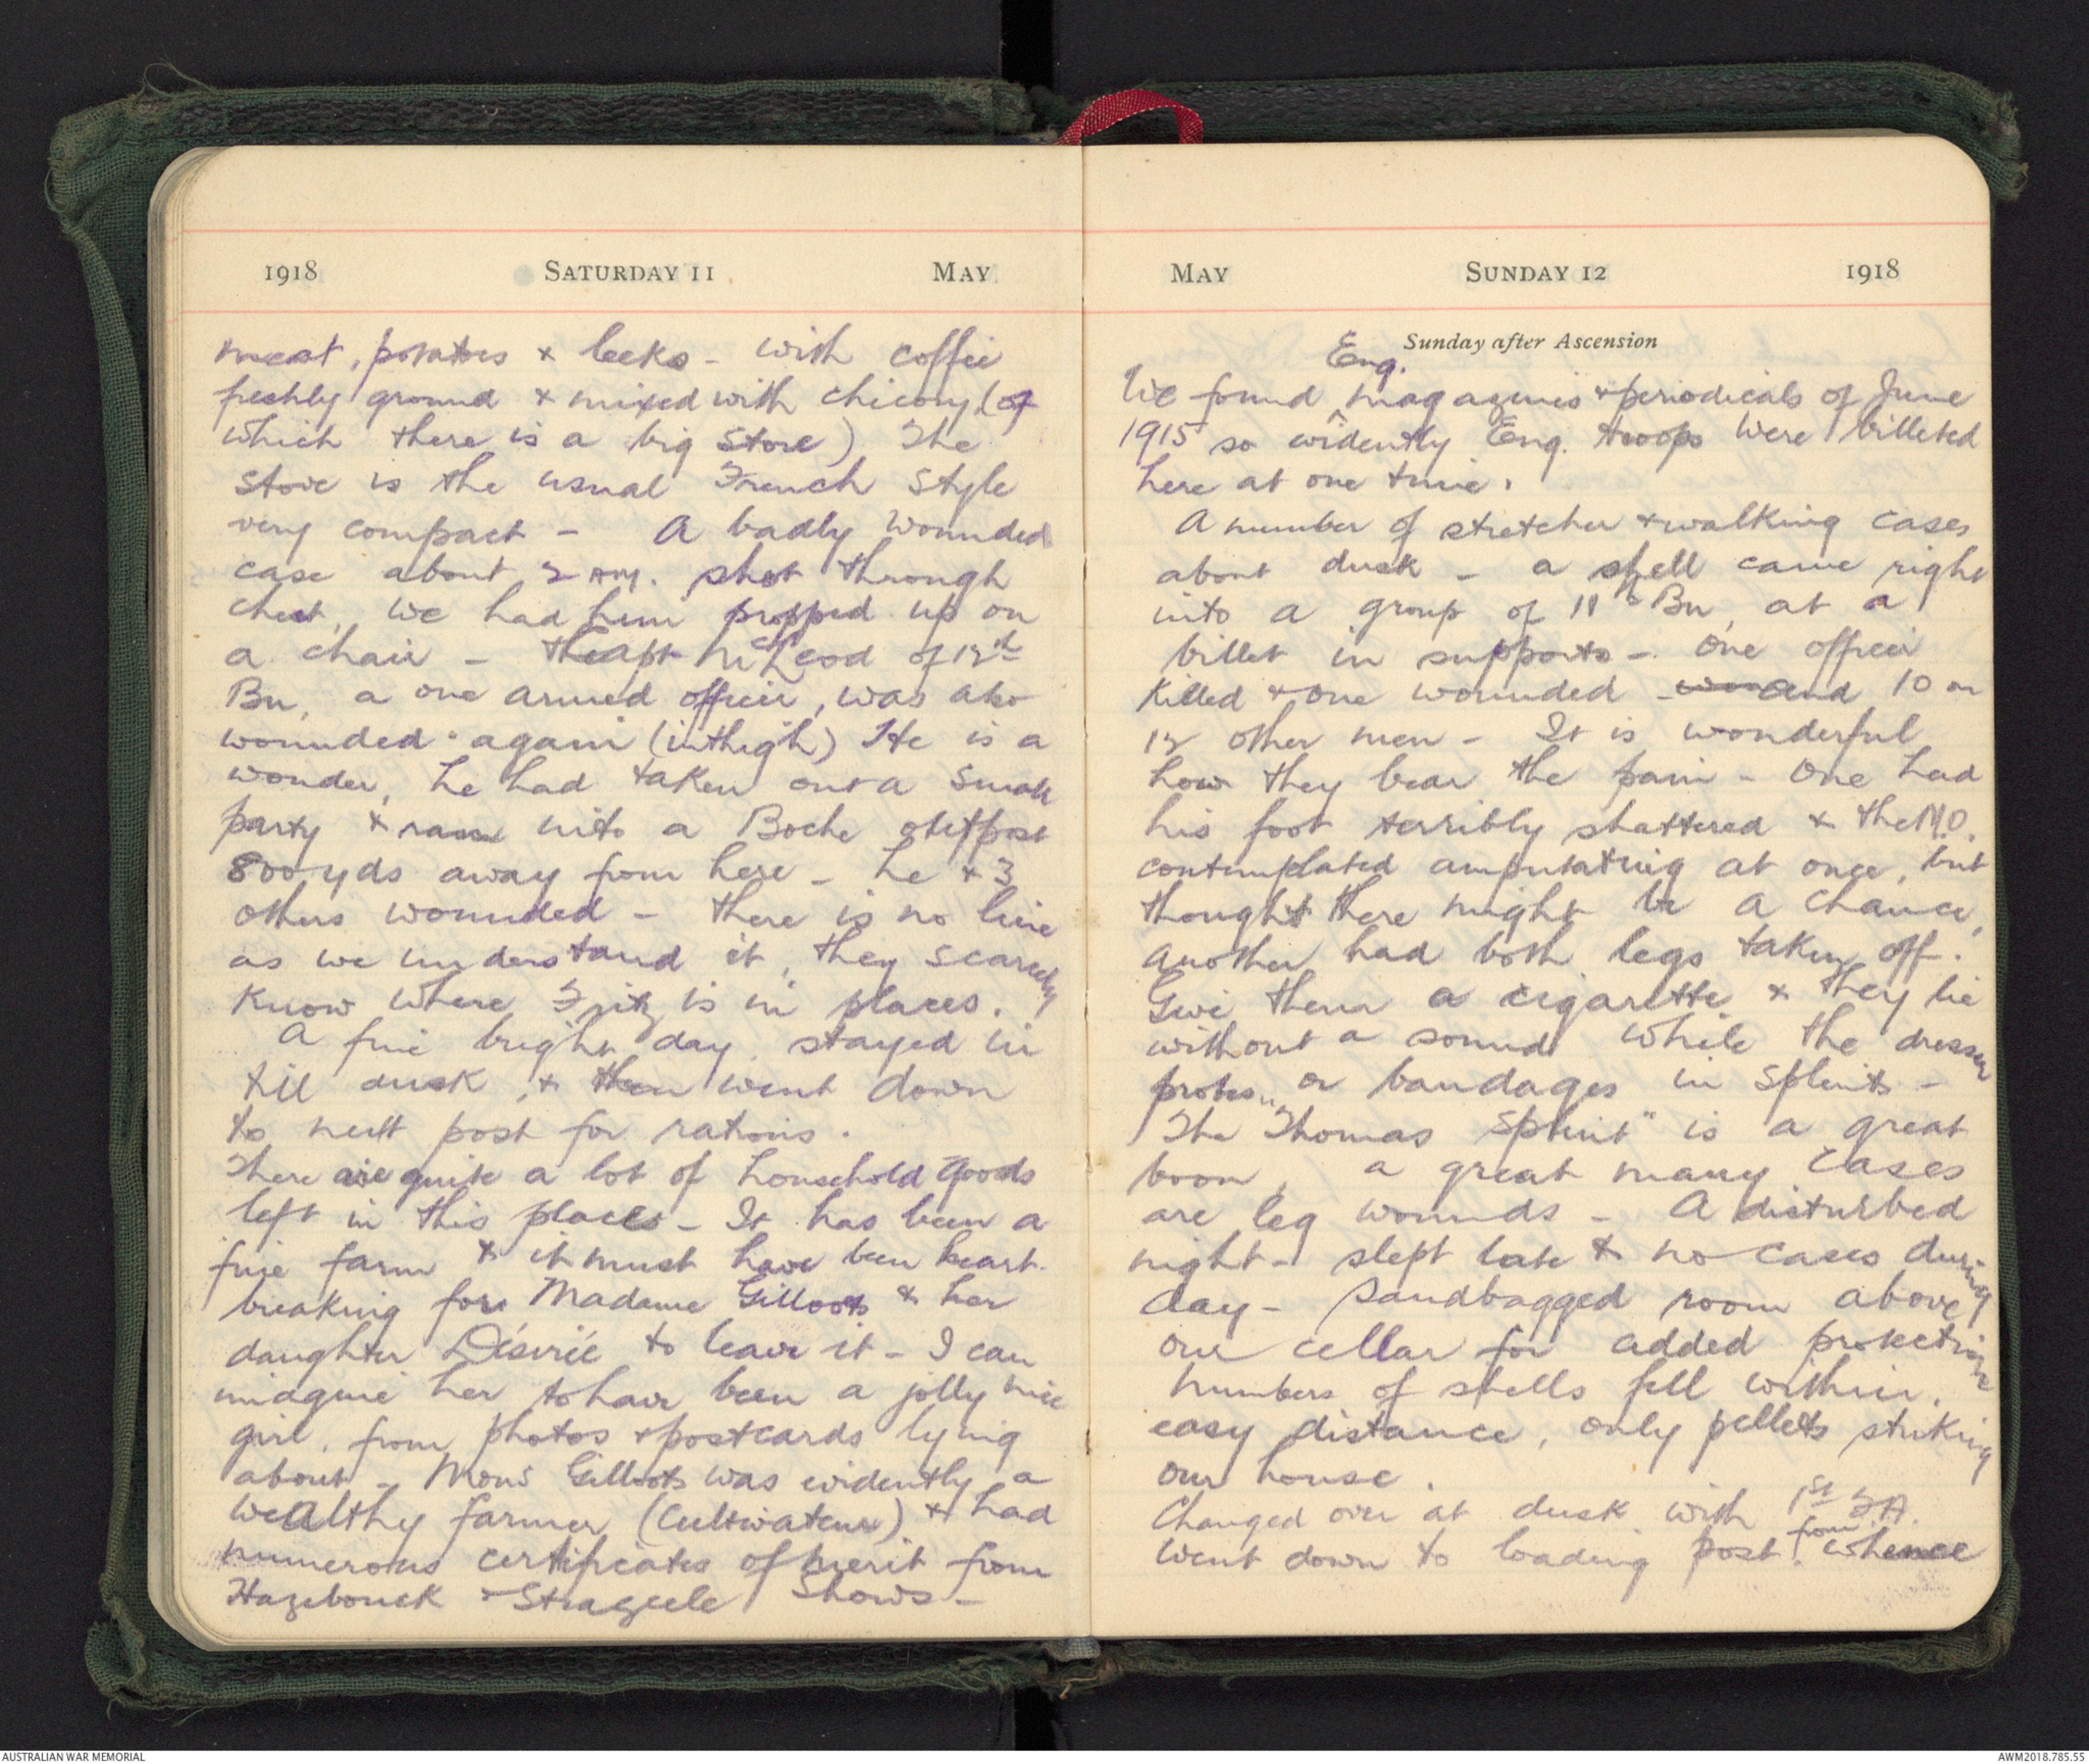 1918 SATURDAY 11 MAY
meat, potatoes & leeks - with coffee
freshly ground & mixed with chicory (of
which there is a big store) The
stove is the usual French style
very compact - A badly wounded
case about 2 AM. shot through
chest, we had him propped up on
a chair - Capt McLeod of 12th
Bn, a one armed officer, was also
wounded again (in thigh) He is a
wonder, he had taken out a small
party & ran into a Boche outpost
800 yds away from here - he & 3
others wounded - there is no line
as we understand it, they scarcely
know where Fritz is in places.
A fine bright day, stayed in
till dusk, & then went down
to next post for rations.
There are quite a lot of household goods
left in this place - It has been a
fine farm & it must have been heart-
breaking for Madame Gilloots & her
daughter Désirée to leave it - I can
imagine her to have been a jolly nice
girl, from photos & postcards lying
about - Mons Gilloots was evidently a
wealthy farmer (Cultivateur) & had
numerous certificates of merit from
Hazebouck & Strazeele Shows -
MAY SUNDAY 12 1918
Sunday after Ascension
Eng.
We found ^ magazines & periodicals of June
1915 so evidently Eng. troops were billeted
here at one time.
A number of stretcher & walking cases
about dusk - a shell came right
into a group of 11th Bn, at a
billet in supports - One officer
killed & one wounded - and 10 or
12 other men - It is wonderful
how they bear the pain - One had
his foot terribly shattered & the M.O.
contemplated amputating at once, but
thought there might be a chance,
another had both legs taken off.
Give them a cigarette & they lie
without a sound while the dresser
probes or bandages in splints -
The "Thomas Splint" is a great
boon, a great many cases
are leg wounds - A disturbed
night - slept late & no cases during
day - Sandbagged room above
our cellar for added protection
Numbers of shells fell within
easy distance, only pellets striking
our house.
Changed over at dusk with 1st FA.
went down to loading post from whence
AUSTRALIAN WAR MEMORIAL
AWM2018.785.55